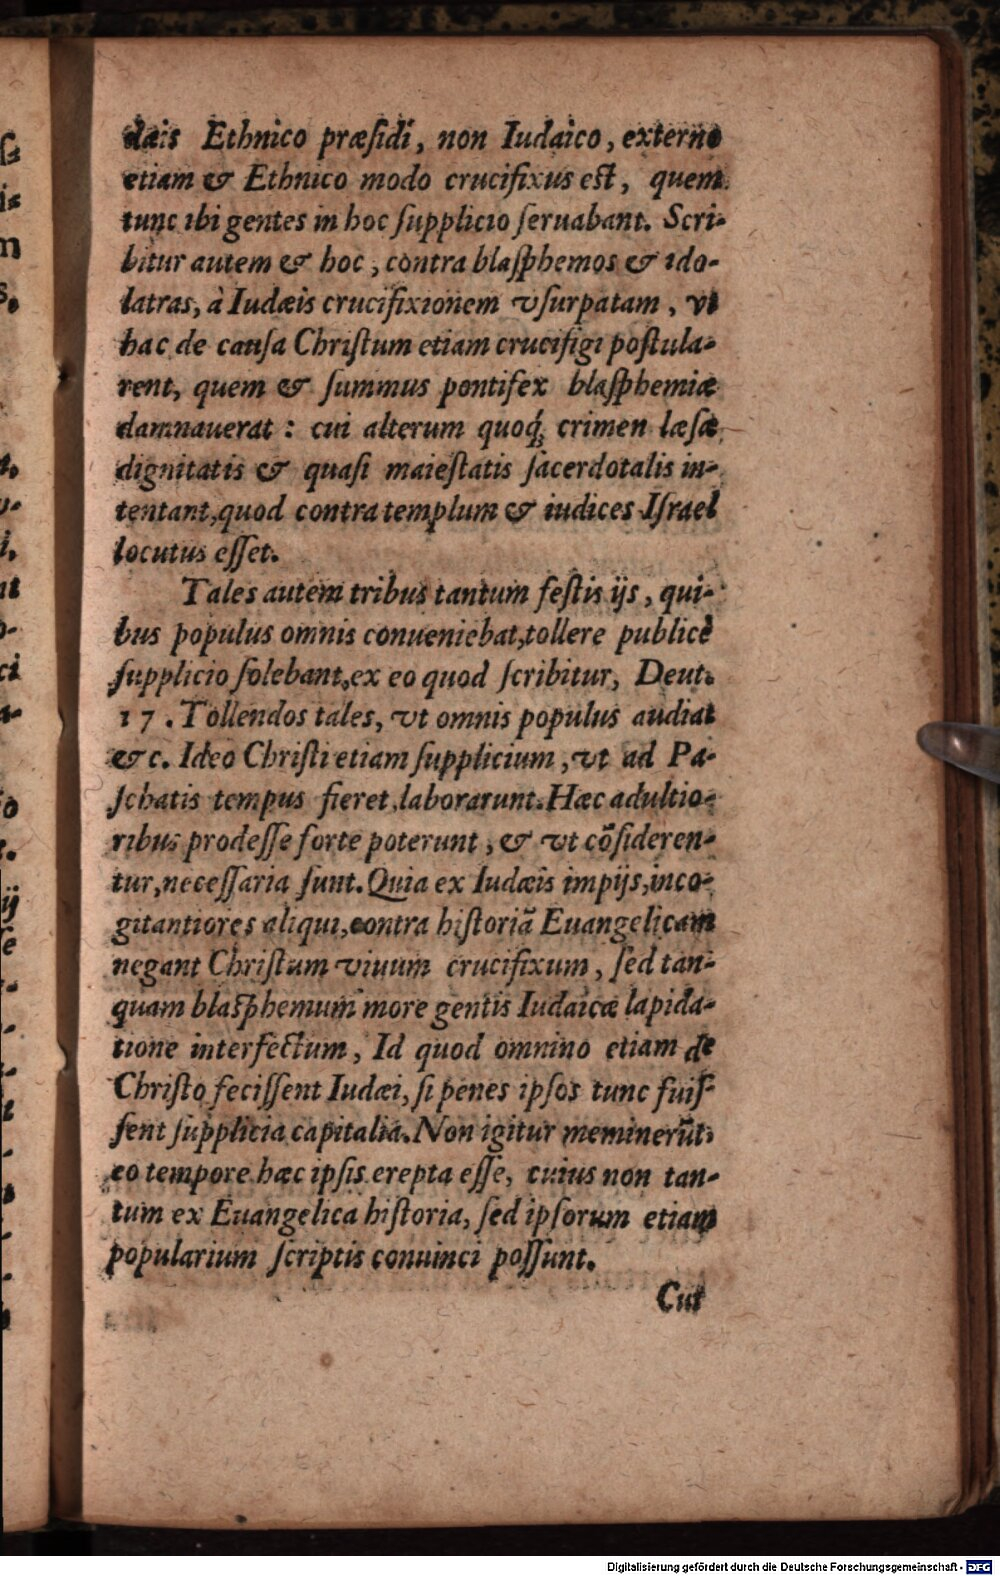 dæis Ethnico præſidi, non Iudaico, externo
etiam & Ethnico modo crucifixus eſt, quem
tunc ibi gentes in hoc ſupplicio ſeruabant. Scri-
bitur autem & hoc, contra blaſphemos & ido-
latras, à Iudæis crucifixionem vſurpatam, vt
hac de cauſa Chriſtum etiam crucifigi poſtula-
rent, quem & ſummus pontifex blaſphemiæ
damnauerat: cui alterum quoq́; crimen læſæ
dignitatis & quaſi maieſtatis ſacerdotalis in-
tentant, quod contra templum & iudices Iſrael
locutus eſſet.
Tales autem tribus tantum feſtis ijs, qui-
bus populus omnis conueniebat, tollere publicè
ſupplicio ſolebant, ex eo quod ſcribitur, Deut.
17. Tollendos tales, vt omnis populus audiat
&c. Ideo Chriſti etiam ſupplicium, vt ad Pa-
ſchatis tempus fieret, laborarunt. Hæc adultio-
ribus prodeſſe forte poterunt, & vt cõſideren-
tur, neceſſaria ſunt. Quia ex Iudæis impijs, inco-
gitantiores aliqui, contra hiſtoriã Euangelicam
negant Chriſtum viuum crucifixum, ſed tan-
quam blaſphemum more gentis Iudaicæ lapida-
tione interfectum, Id quod omnino etiam de
Chriſto feciſſent Iudæi, ſi penes ipſos tunc fuiſ-
ſent ſupplicia capitalia. Non igitur meminerũt
eo tempore hæc ipſis erepta eſſe, cuius non tan-
tum ex Euangelica hiſtoria, ſed ipſorum etiam
popularium ſcriptis conuinci poſſunt.
Cui
Digitalisierung gefördert durch die Deutsche Forschungsgemeinschaft - DFG